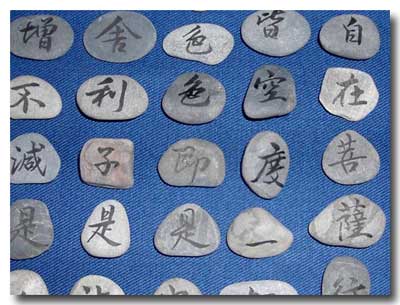 自在菩薩行
皆空度一
色色即是
舎利子是
增不減是